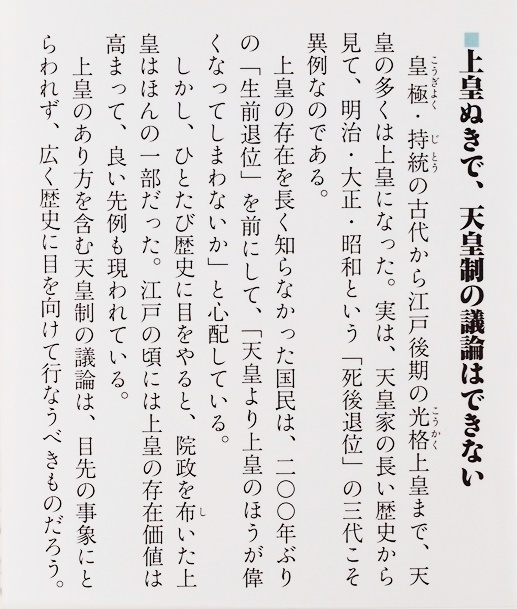 ■上皇ぬきで、天皇制の議論はできない
皇極・持統の古代から江戸後期の光格上皇まで、天
こうぎよく
じとう
こうかく
皇の多くは上皇になった。実は、天皇家の長い歴史から
見て、明治・大正・昭和という「死後退位」の三代こそ
異例なのである。
上皇の存在を長く知らなかった国民は、二〇〇年ぶり
の「生前退位」を前にして、「天皇より上皇のほうが偉
くなってしまわないか」と心配している。
しかし、ひとたび歴史に目をやると、院政を布いた上
し
皇はほんの一部だった。江戸の頃には上皇の存在価値は
高まって、良い先例も現われている。
上皇のあり方を含む天皇制の議論は、目先の事象にと
らわれず、広く歴史に目を向けて行なうべきものだろう。